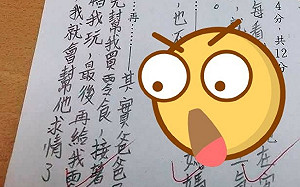 4分 共12分
每看
也不
再……其實爸爸
幫我買零食，接著
我玩，最後再給我
我就會幫他求情了